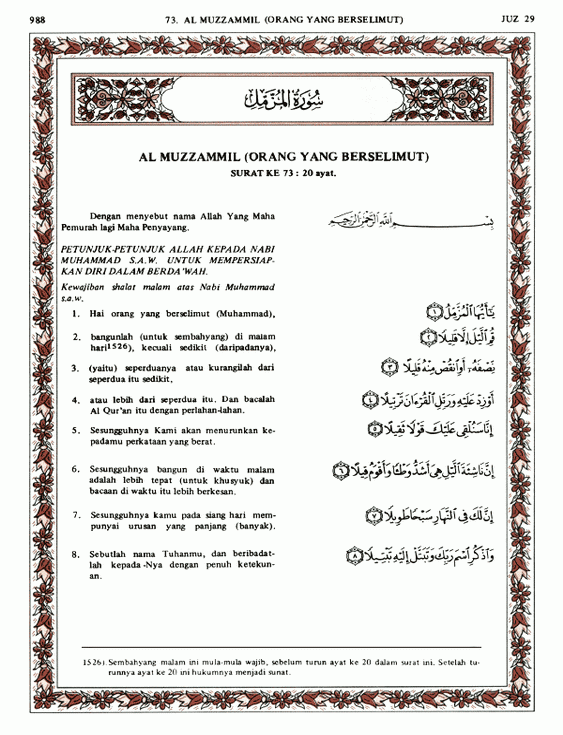 988
73. AL MUZZAMMIL (ORANG YANG BERSELIMUT)
JUZ 29
سُورَةُ المُزَّمِّل
AL MUZZAMMIL (ORANG YANG BERSELIMUT)
SURAT KE 73 : 20 ayat.
Dengan menyebut nama Allah Yang Maha
Pemurah lagi Maha Penyayang.
بِسْمِ اللَّهِ الرَّحْمَٰنِ الرَّحِيمِ
PETUNJUK-PETUNJUK ALLAH KEPADA NABI
MUHAMMAD S.A.W. UNTUK MEMPERSIAP-
KAN DIRI DALAM BERDA'WAH.
Kewajiban shalat malam atas Nabi Muhammad
s.a.w.
1. Hai orang yang berselimut (Muhammad),
يَٰٓأَيُّهَا ٱلْمُزَّمِّلُ ۝١
2. bangunlah (untuk sembahyang) di malam
hari1526), kecuali sedikit (daripadanya),
قُمِ ٱلَّيْلَ إِلَّا قَلِيلًا ۝٢
3. (yaitu) seperduanya atau kurangilah dari
seperdua itu sedikit,
نِّصْفَهُۥٓ أَوِ ٱنقُصْ مِنْهُ قَلِيلًا ۝٣
4. atau lebih dari seperdua itu. Dan bacalah
Al Qur'an itu dengan perlahan-lahan.
أَوْ زِدْ عَلَيْهِ وَرَتِّلِ ٱلْقُرْءَانَ تَرْتِيلًا ۝٤
5. Sesungguhnya Kami akan menurunkan ke-
padamu perkataan yang berat.
إِنَّا سَنُلْقِى عَلَيْكَ قَوْلًا ثَقِيلًا ۝٥
6. Sesungguhnya bangun di waktu malam
adalah lebih tepat (untuk khusyuk) dan
bacaan di waktu itu lebih berkesan.
إِنَّ نَاشِئَةَ ٱلَّيْلِ هِىَ أَشَدُّ وَطْـًٔا وَأَقْوَمُ قِيلًا ۝٦
7. Sesungguhnya kamu pada siang hari mem-
punyai urusan yang panjang (banyak).
إِنَّ لَكَ فِى ٱلنَّهَارِ سَبْحًا طَوِيلًا ۝٧
8. Sebutlah nama Tuhanmu, dan beribadat-
lah kepada-Nya dengan penuh ketekun-
an.
وَٱذْكُرِ ٱسْمَ رَبِّكَ وَتَبَتَّلْ إِلَيْهِ تَبْتِيلًا ۝٨
1526). Sembahyang malam ini mula-mula wajib, sebelum turun ayat ke 20 dalam surat ini. Setelah tu-
runnya ayat ke 20 ini hukumnya menjadi sunat.